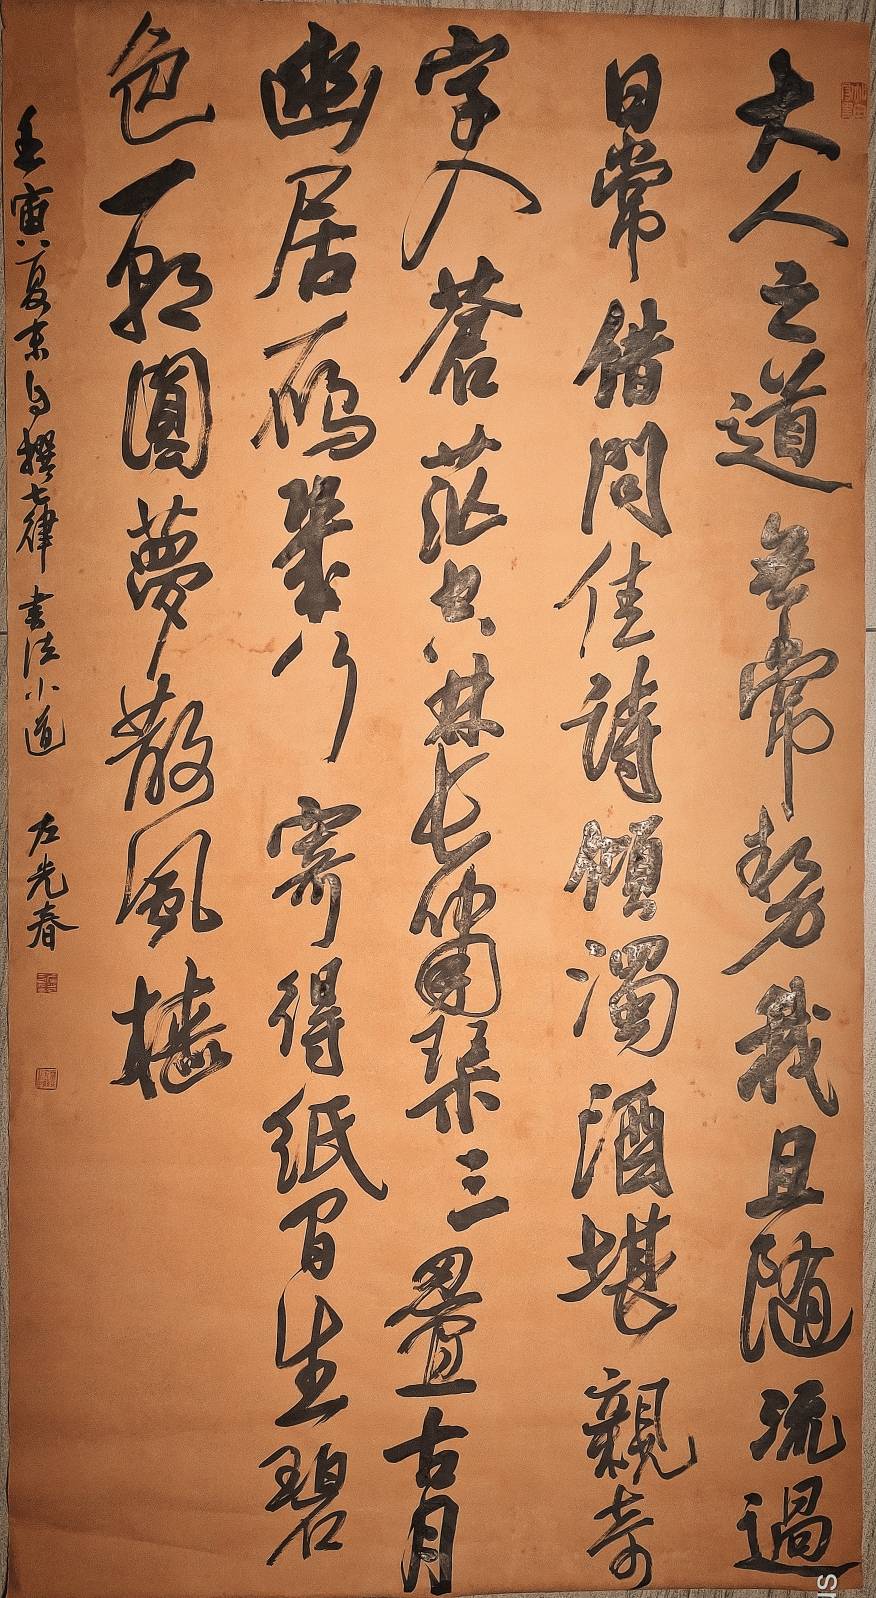 大人之道無常勢我且隨流過
日常借問佳詩傾濁酒堪親奇
字入蒼茫竹林長嘯琴三疊古月
幽居雁幾行寄得紙間生碧
色一圓夢散風檣
壬寅夏末自撰七律 書法小道 左光春